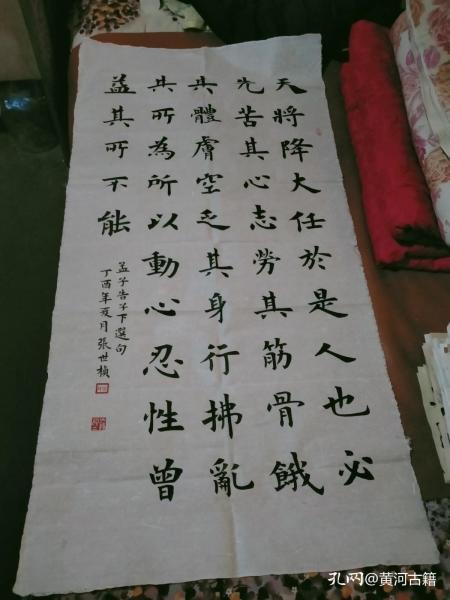 天將降大任於是人也必
先苦其心志勞其筋骨餓
其體膚空乏其身行拂亂
其所為所以動心忍性曾
益其所不能
孟子告子下選句
丁酉年夏月張世楨
孔网@黄河古籍